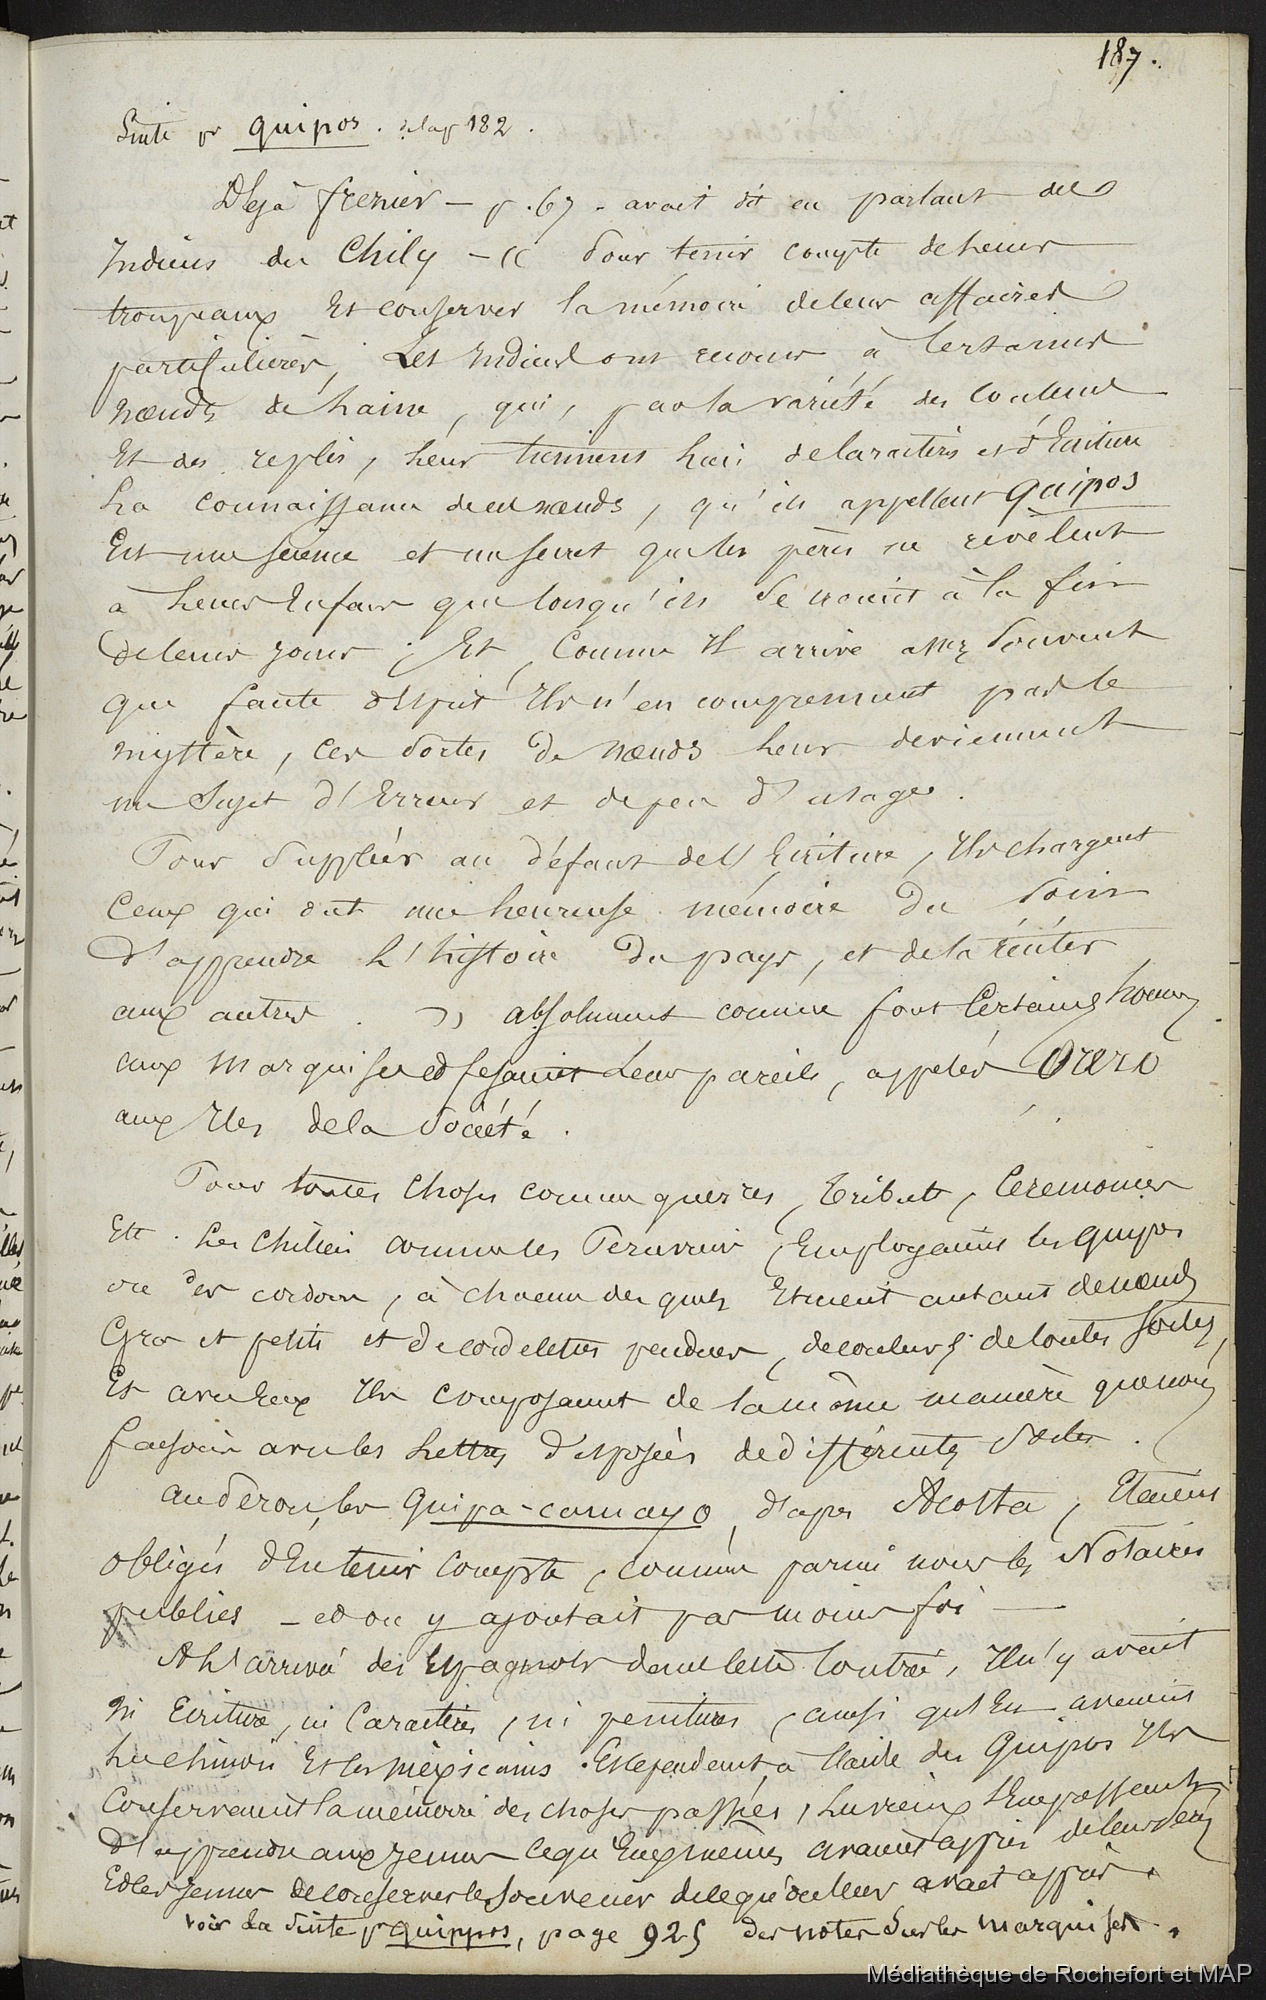 187.
Suite pr quipos. de la p 182.
Dejà frezier – p. 67 – avait dit en parlant des
Indiens du Chily – « Pour tenir compte de leurs
troupeaux Et conserver la mémoire de leurs affaires
particulières, Les Indiens ont recours à certains
nœuds de laine, qui, par la variété des couleurs
Et des replis, leur tiennent lieu de caractères et d'Ecriture
La connaissance de ces nœuds, qu'ils appellent quipos
Est une science et un secret que les pères ne revèlent
à leurs Enfans que lorsqu'ils se croient à la fin
de leurs jours ; Et, Comme Il arrive assez souvent
que faute d'Esprit Ils n'en comprennent pas le
mystère, Ces sortes de nœuds leur deviennent
un sujet d'Erreur et de peu d'usage.
Pour suppléer au défaut de l'Ecriture, Ils chargent
Ceux qui ont une heureuse mémoire du soin
d'apprendre l'histoire du pays, et de la réciter
aux autres. » absolument comme font Certains hommes
aux marquises et fesaient leurs pareils, appelés Orero
aux Iles de la Société.
Pour toutes choses comme guerres, tributs, Cérémonies
Ett. Les Chiliens comme les Peruviens, Employaient les quipos
ou des cordons, à chacun des quels Etaient autant de nœuds
Gros et petits et de cordelettes pendues, de couleurs de toutes sortes,
Et avec Eux Ils composaient de la même manière que nous
faisons avec les Lettres disposées de différentes sortes.
au Pérou, les Quipa-camayo, d'après Acosta, Etaient
obligés d'En tenir compte, comme parmi nous les Notaires
publics – et on y ajoutait pas moins foi —
A l'arrivée des Espagnols dans cette Contrée, Il n'y avait
ni Ecriture, ni Caractères, ni peintures, ainsi qu'En avaient
Les chinois Et les méxicains. Et cependant, à l'aide des Quipos Ils
Conservaient la mémoire des choses passées, Les vieux s'Empressant
d'apprendre aux jeunes ce qu'Eux mêmes avaient appris de leurs pères
Et les jeunes de conserver le souvenir de ce qu'on leur avait appris.
voir la suite pr quippos, page 925 des notes sur les marquises.
Médiathèque de Rochefort et MAP